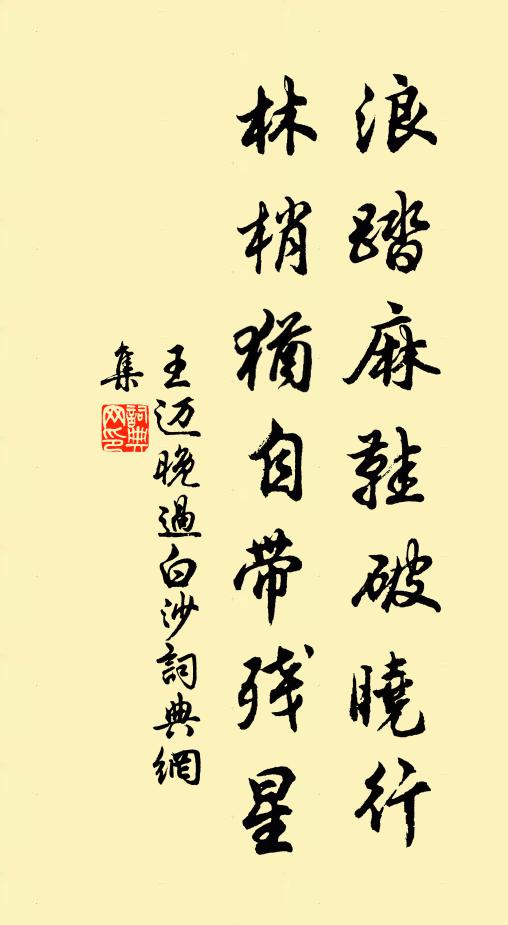 浪踏麻鞋破曉行
林梢猶自带残星
王迈晚過白沙詞典網
集
詞典網印